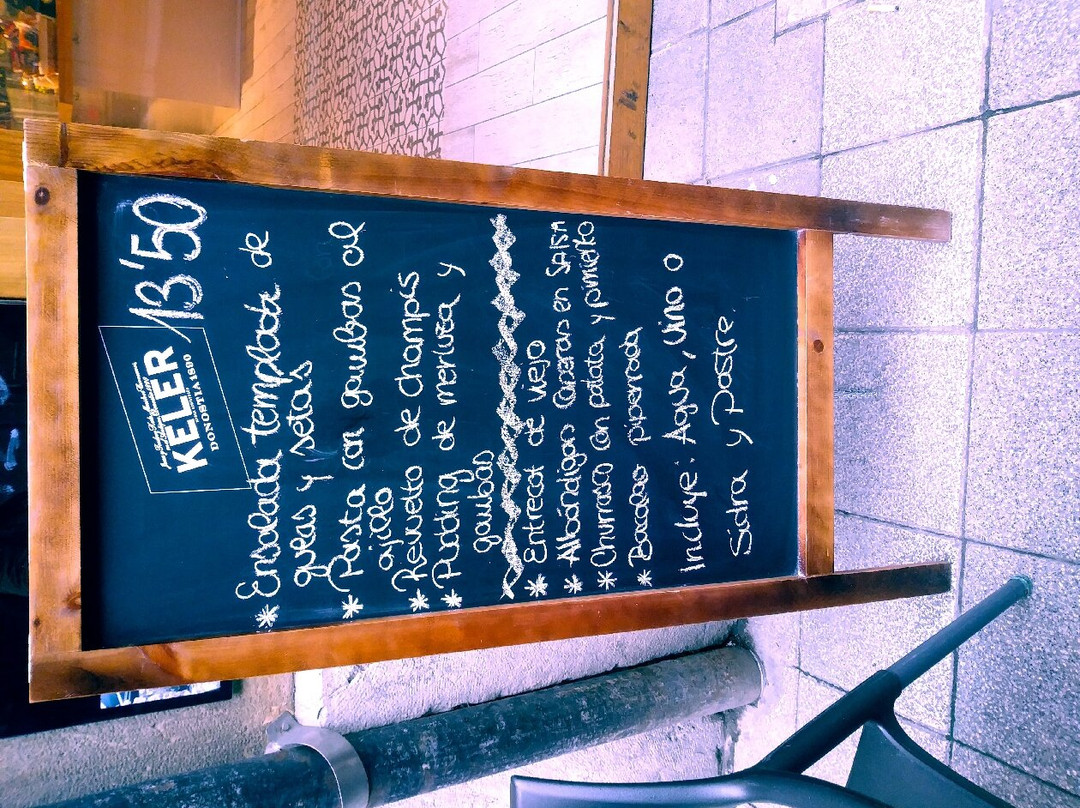 KELER
DONOSTIA 1890
13'50
* Ensalada templada de
gulas y setas
* Pasta con gambas al
ajillo
* Revuelto de champis
* Pudding de merluza y
gambas
* Entrecot de viejo
* Albóndigas caseras en SALSA
* Churrasco con patata y pimiento
* Bacalao piperrada
Incluye: Agua, vino o
Sidra y postre.